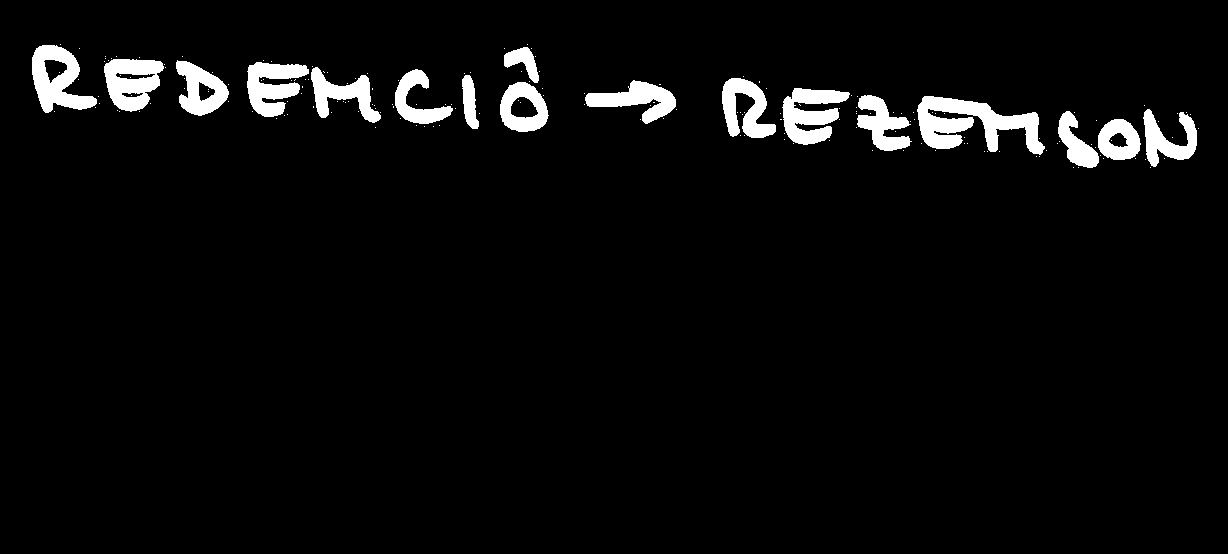 REDEMCIÔ → REZEMSON